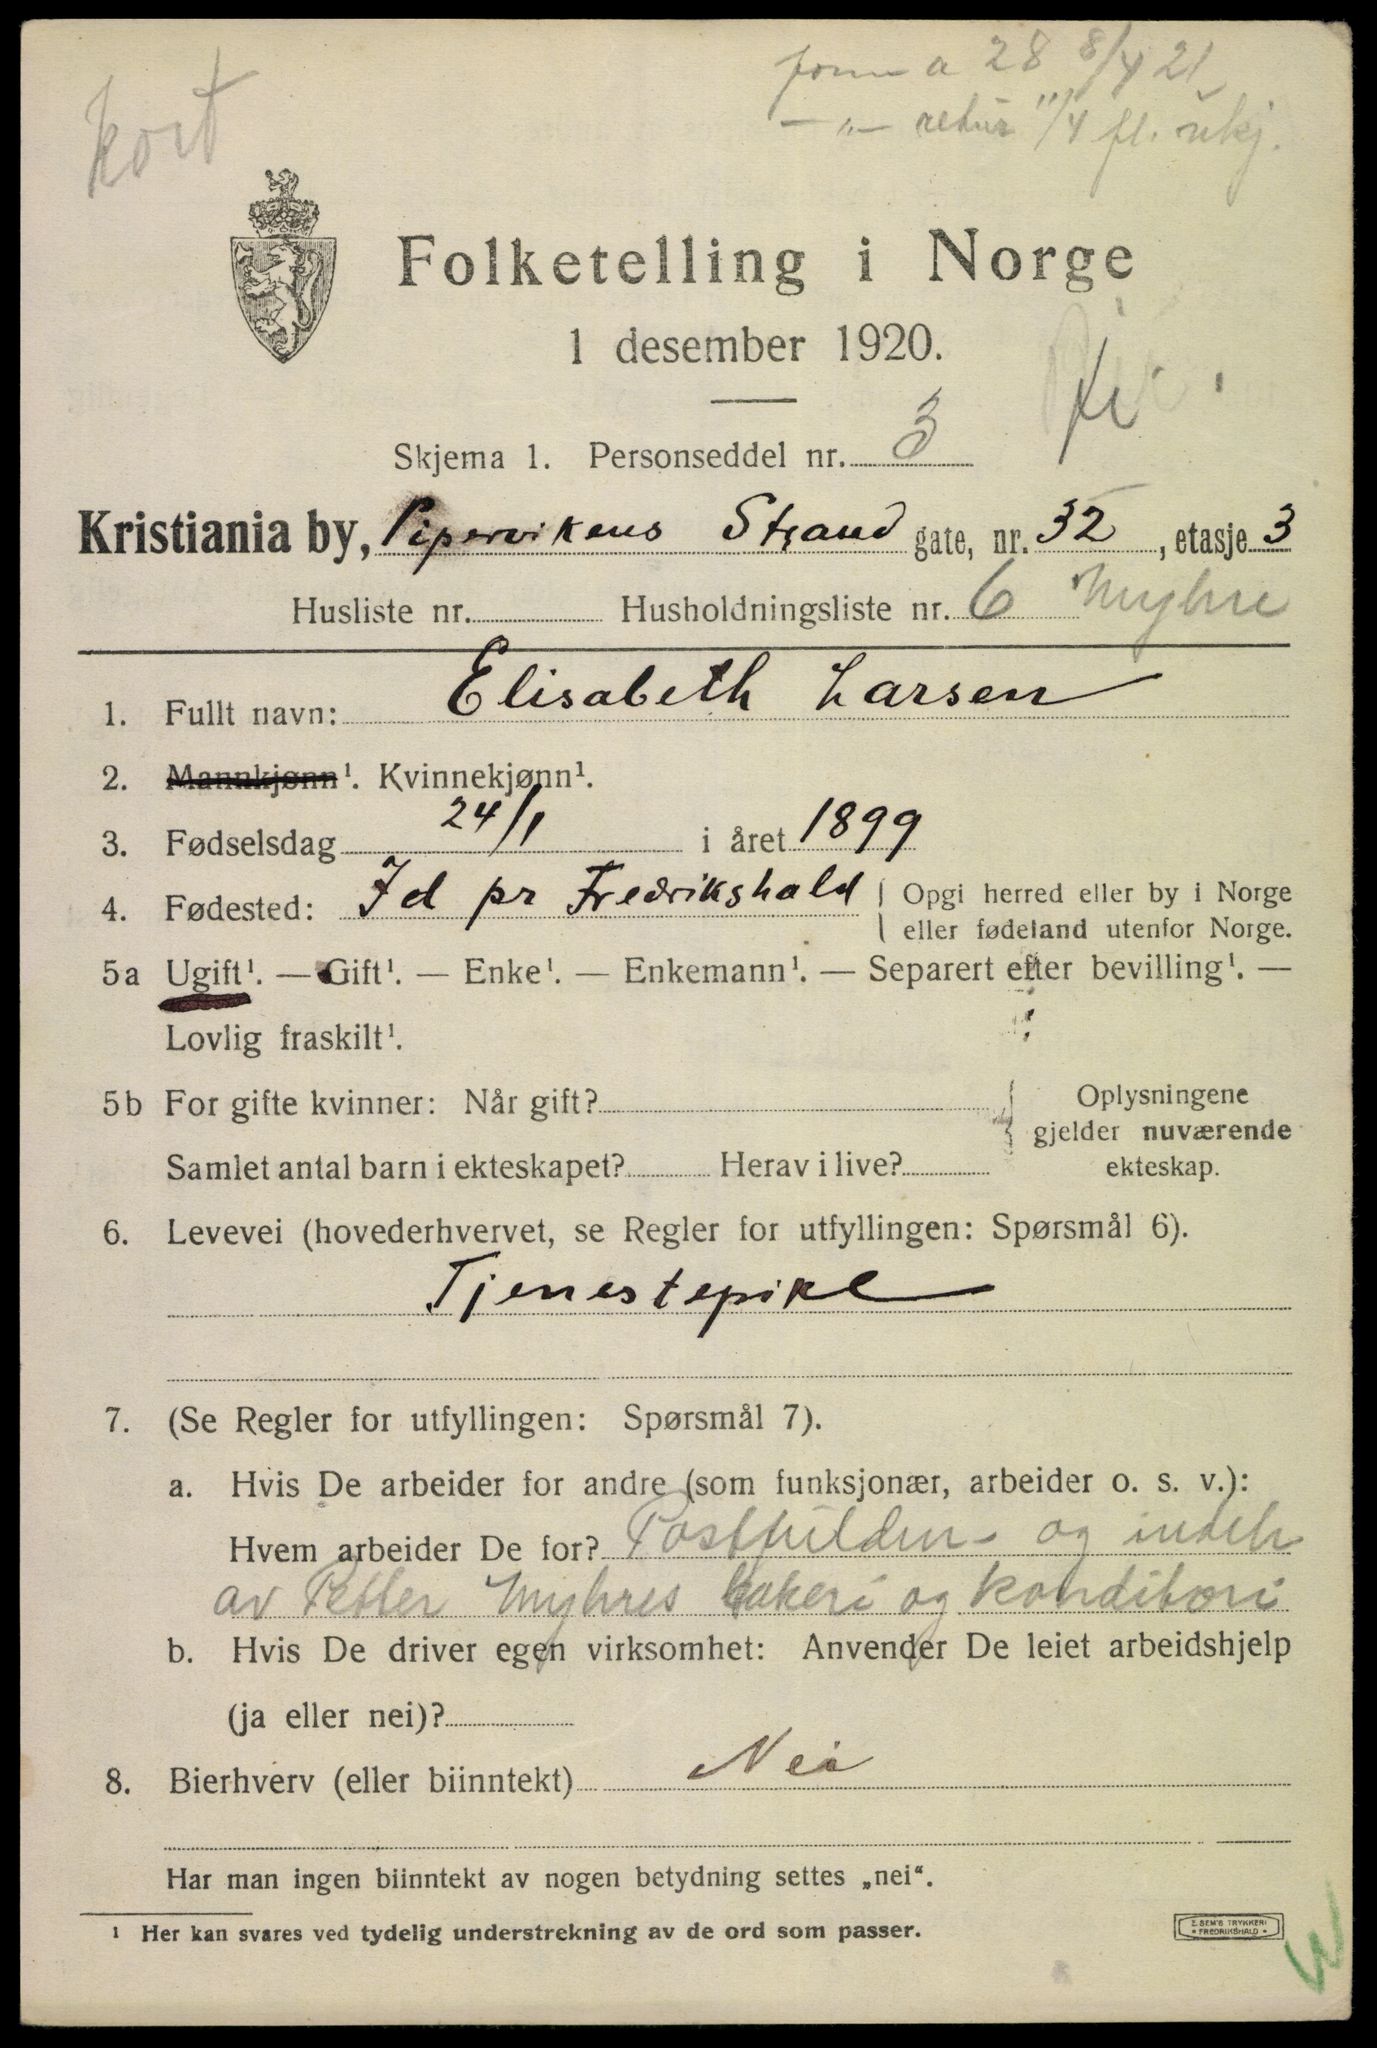 kort
form a 28 8/4 21
— „ — retur 11/4 fl. ukj.
Folketelling i Norge
1 desember 1920.
Skjema 1. Personseddel nr. 3
Kristiania by, Pipervikens Strand gate, nr. 32, etasje 3
Husliste nr. Husholdningsliste nr. 6 Myhre
1. Fullt navn: Elisabeth Larsen
2. Mannkjønn¹. Kvinnekjønn¹.
3. Fødselsdag 24/1 i året 1899
4. Fødested: Id pr Fredrikshald Opgi herred eller by i Norge
eller fødeland utenfor Norge.
5a Ugift¹. — Gift¹. — Enke¹. — Enkemann¹. — Separert efter bevilling¹. —
Lovlig fraskilt¹.
5b For gifte kvinner: Når gift? Oplysningene
gjelder nuværende
Samlet antal barn i ekteskapet? Herav i live? ekteskap.
6. Levevei (hovederhvervet, se Regler for utfyllingen: Spørsmål 6).
Tjenestepike
7. (Se Regler for utfyllingen: Spørsmål 7).
a. Hvis De arbeider for andre (som funksjonær, arbeider o. s. v.):
Hvem arbeider De for? og indeh
av Petter Myhres bakeri og konditori
b. Hvis De driver egen virksomhet: Anvender De leiet arbeidshjelp
(ja eller nei)?
8. Bierhverv (eller biinntekt) Nei
Har man ingen biinntekt av nogen betydning settes „nei“.
¹ Her kan svares ved tydelig understrekning av de ord som passer.
E. SEM'S TRYKKERI
FREDRIKSHALD